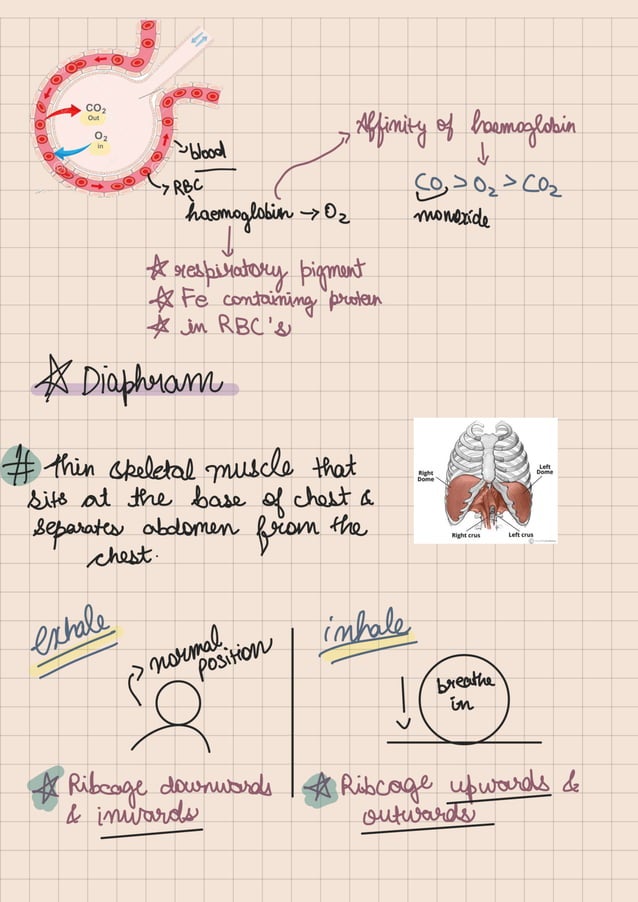 CO2
Out
O2
in
blood
RBC
haemoglobin → O2
Affinity of haemoglobin
CO > O2 > CO2
monoxide
☆ respiratory pigment
☆ Fe containing protein
☆ in RBC's
☆ Diaphram
# Thin skeletal muscle that
sits at the base of chest &
separates abdomen from the
chest.
Right
Dome
Left
Dome
Right crus
Left crus
exhale
normal
position
inhale
breathe
in
☆ Ribcage downwards
& inwards
☆ Ribcage upwards &
outwards